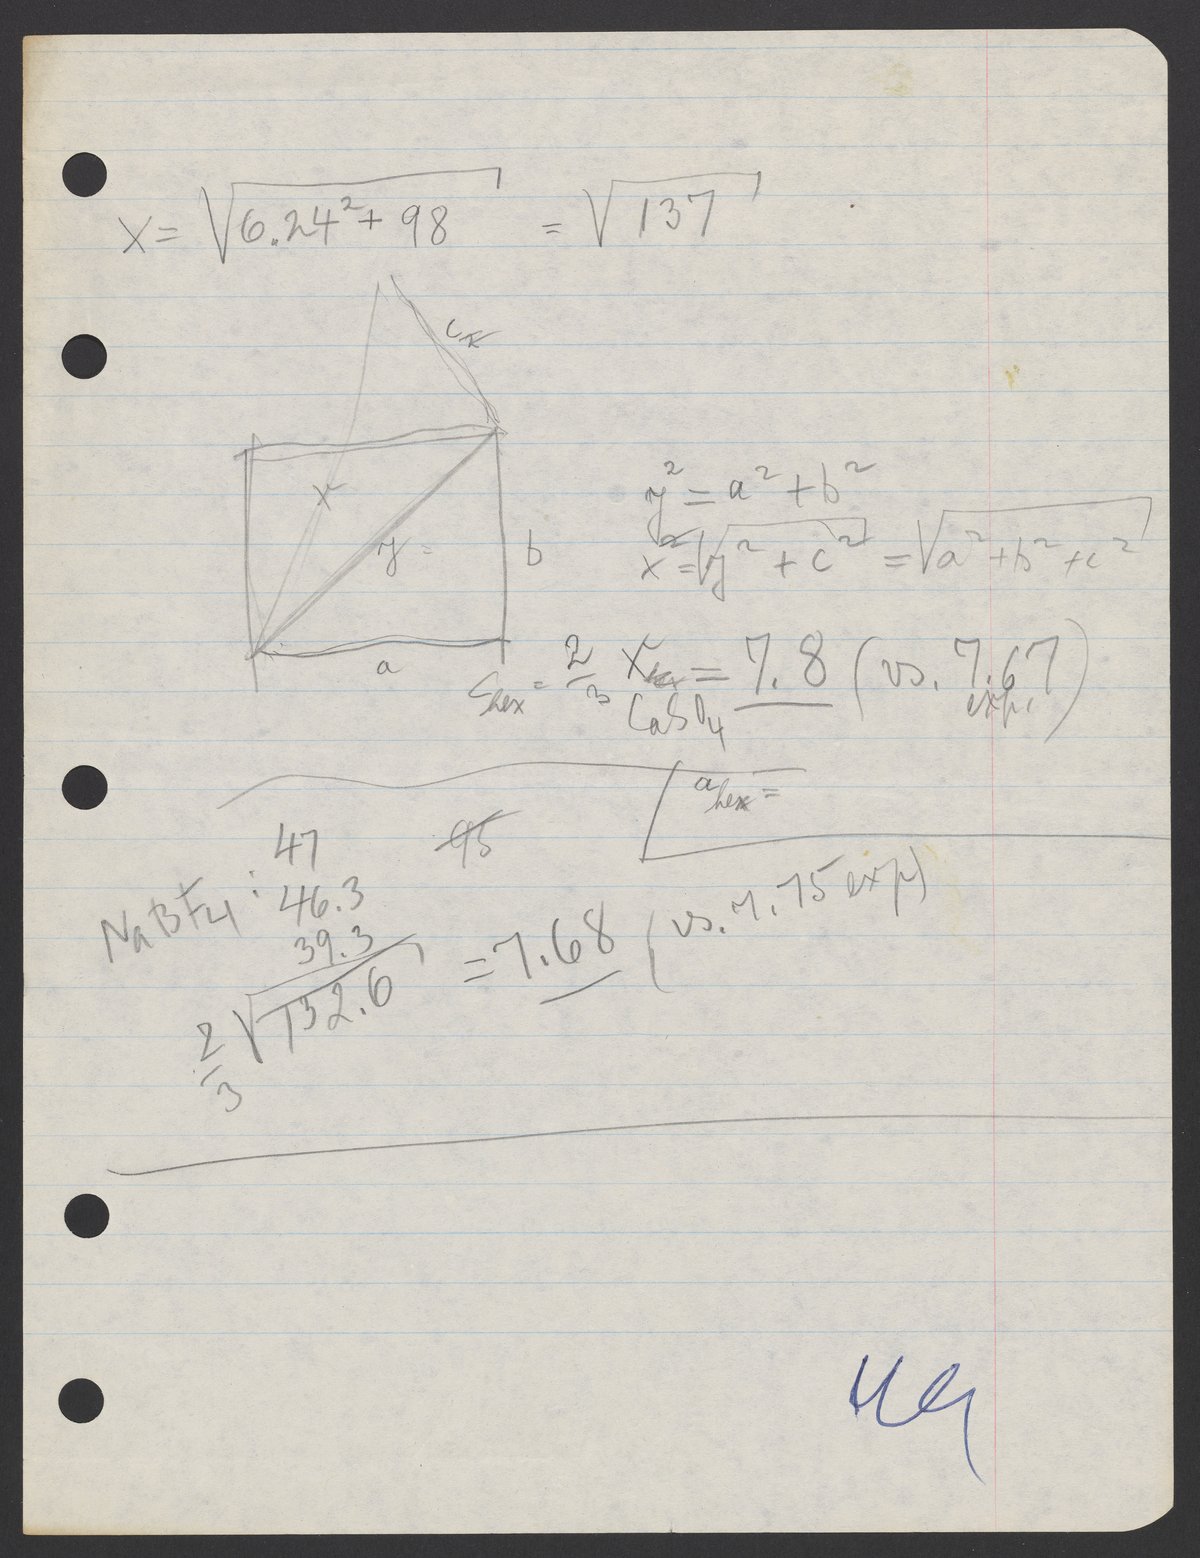 X = √6.24² + 98 = √137
c
x
y =
b
a
y² = a² + b²
x² = √y² + c² = √a² + b² + c²
C hex = 2/3 X = 7.8 (vs. 7.67 exp.)
CaSO4
a hex =
NaBF4 : 47
46.3
39.3
95
2/3 √132.6 = 7.68 (vs. 7.75 exp)